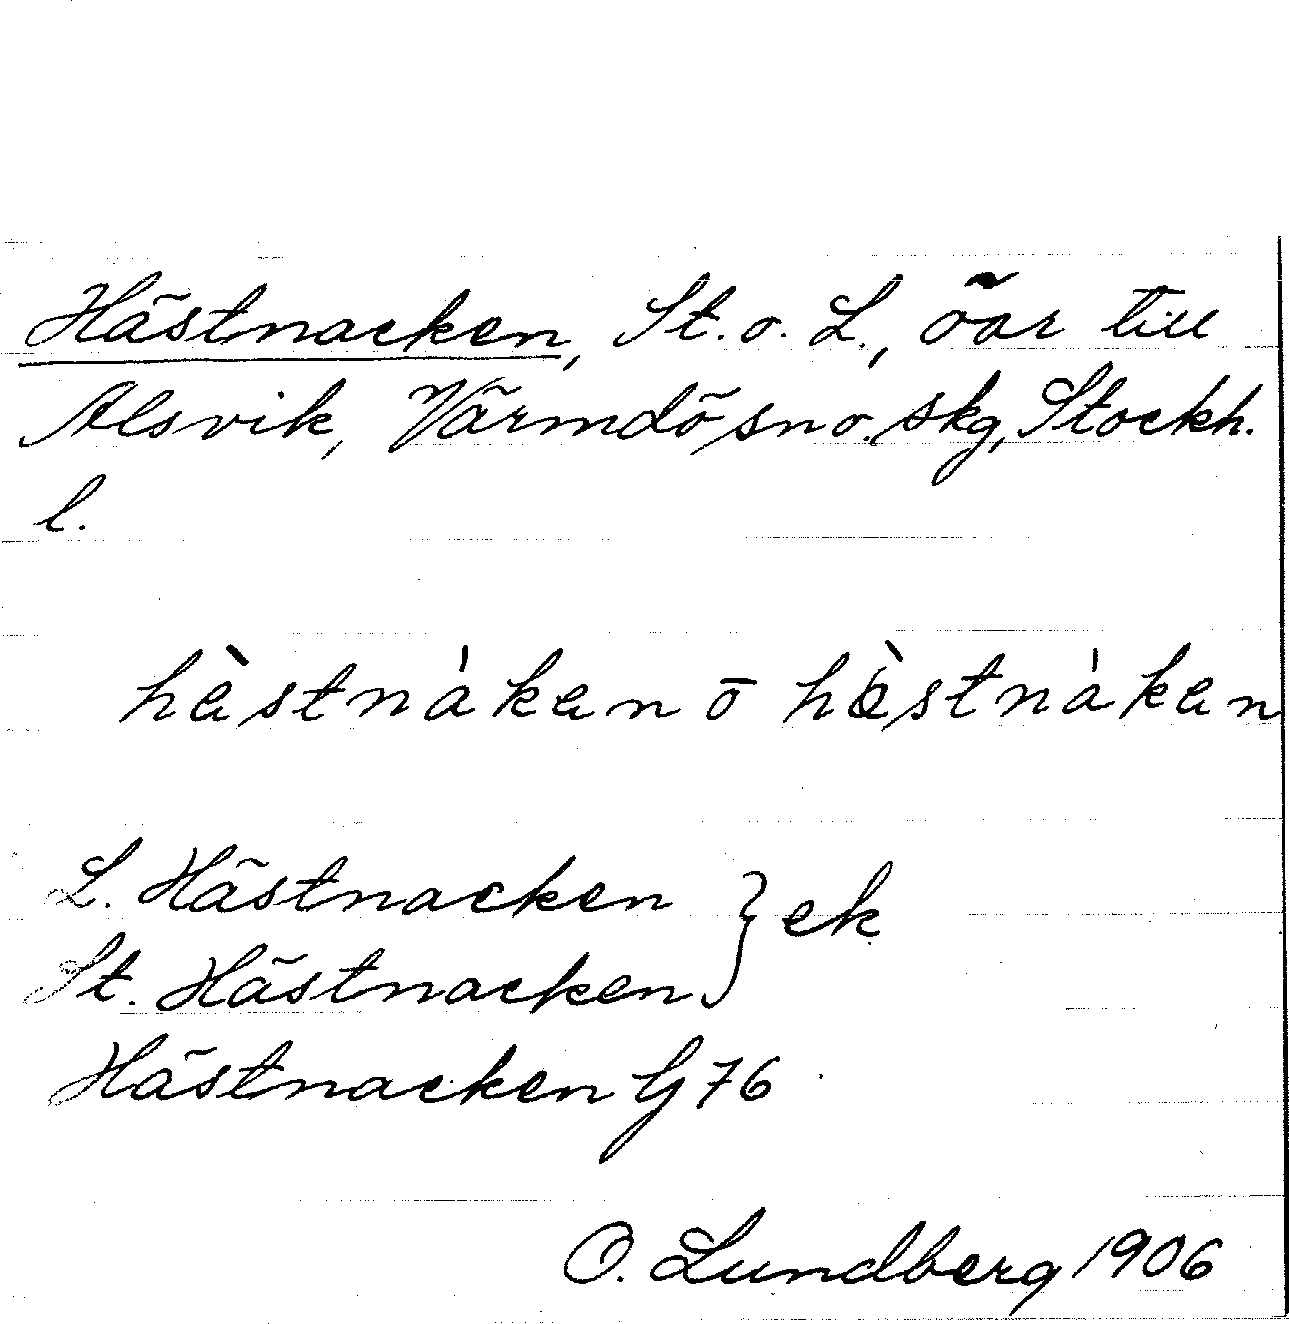 Hästnacken, St. o. L., öar till
Alsvik, Värmdö sn o. skg, Stockh.
l.
hàstnákan o hàstnákan
L. Hästnacken } ek
St. Hästnacken
Hästnacken G 76
O. Lundberg 1906